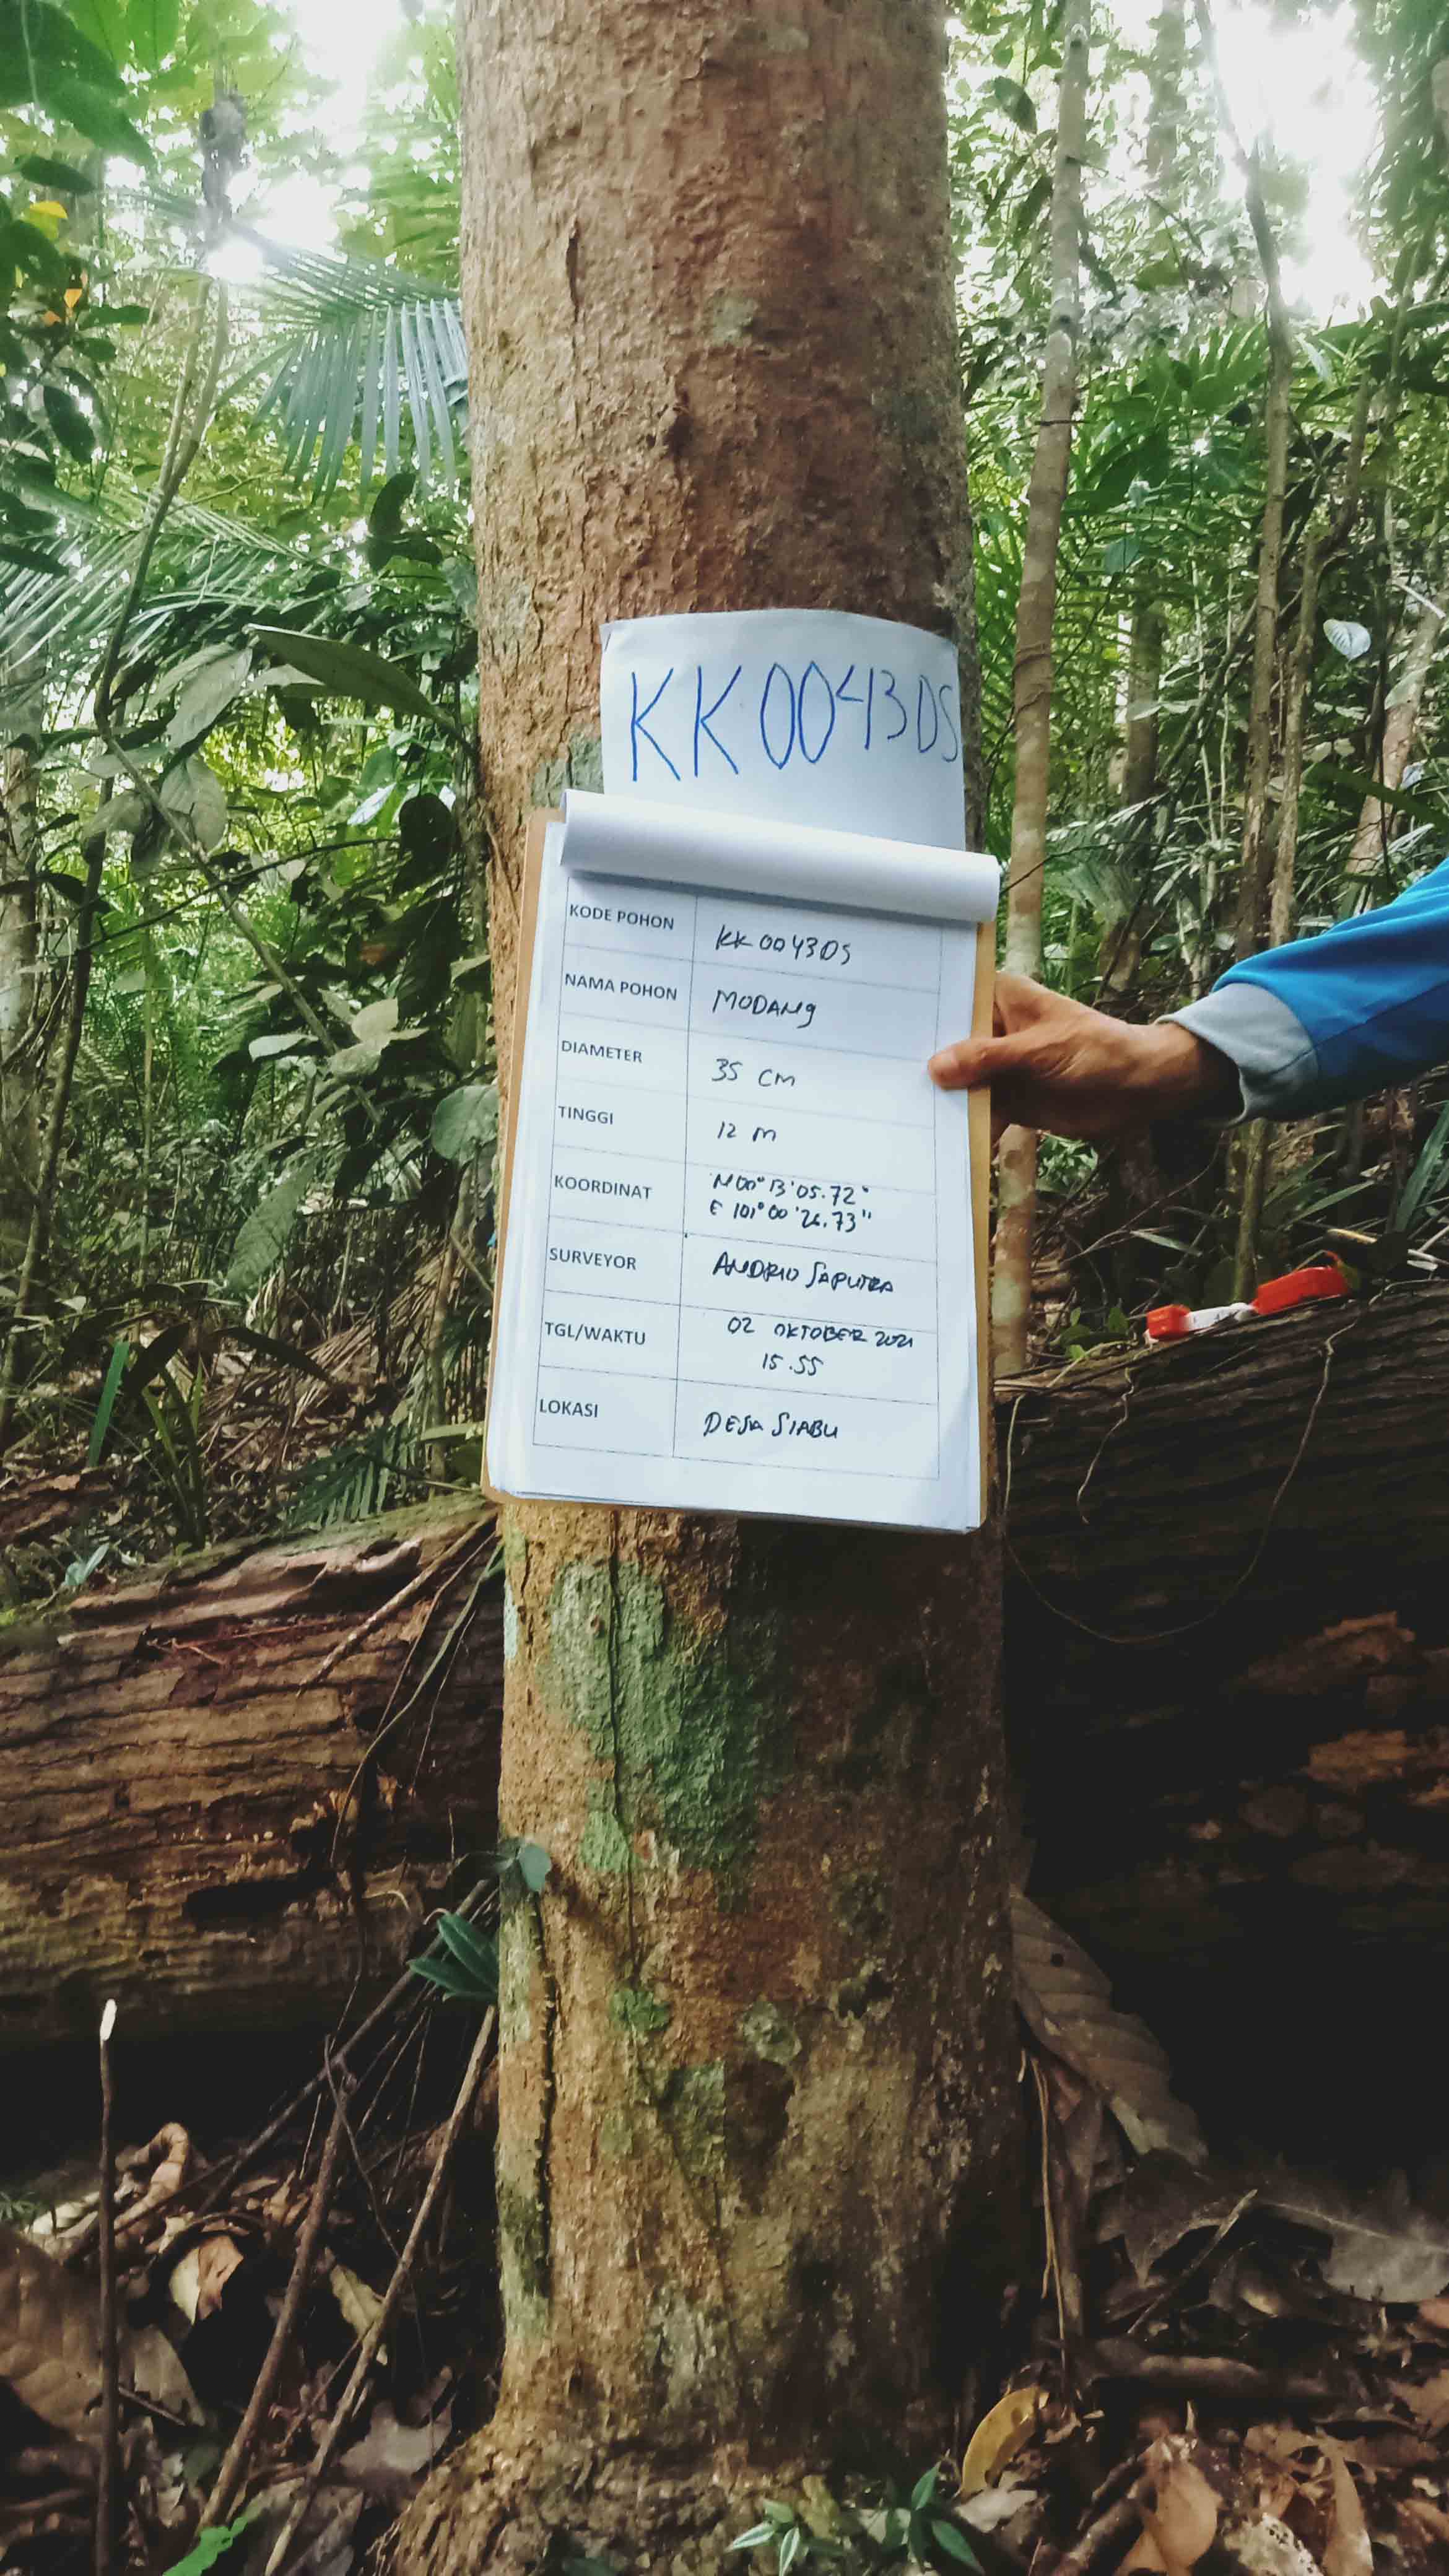 KK0043DS
KODE POHON KK0043DS
NAMA POHON MODANg
DIAMETER 35 CM
TINGGI 12 M
KOORDINAT N 00° 13' 05.72"
E 101° 00' 26.73"
SURVEYOR ANDRIO SAPUTRA
TGL/WAKTU 02 OKTOBER 2021
15.55
LOKASI DESA SIABU